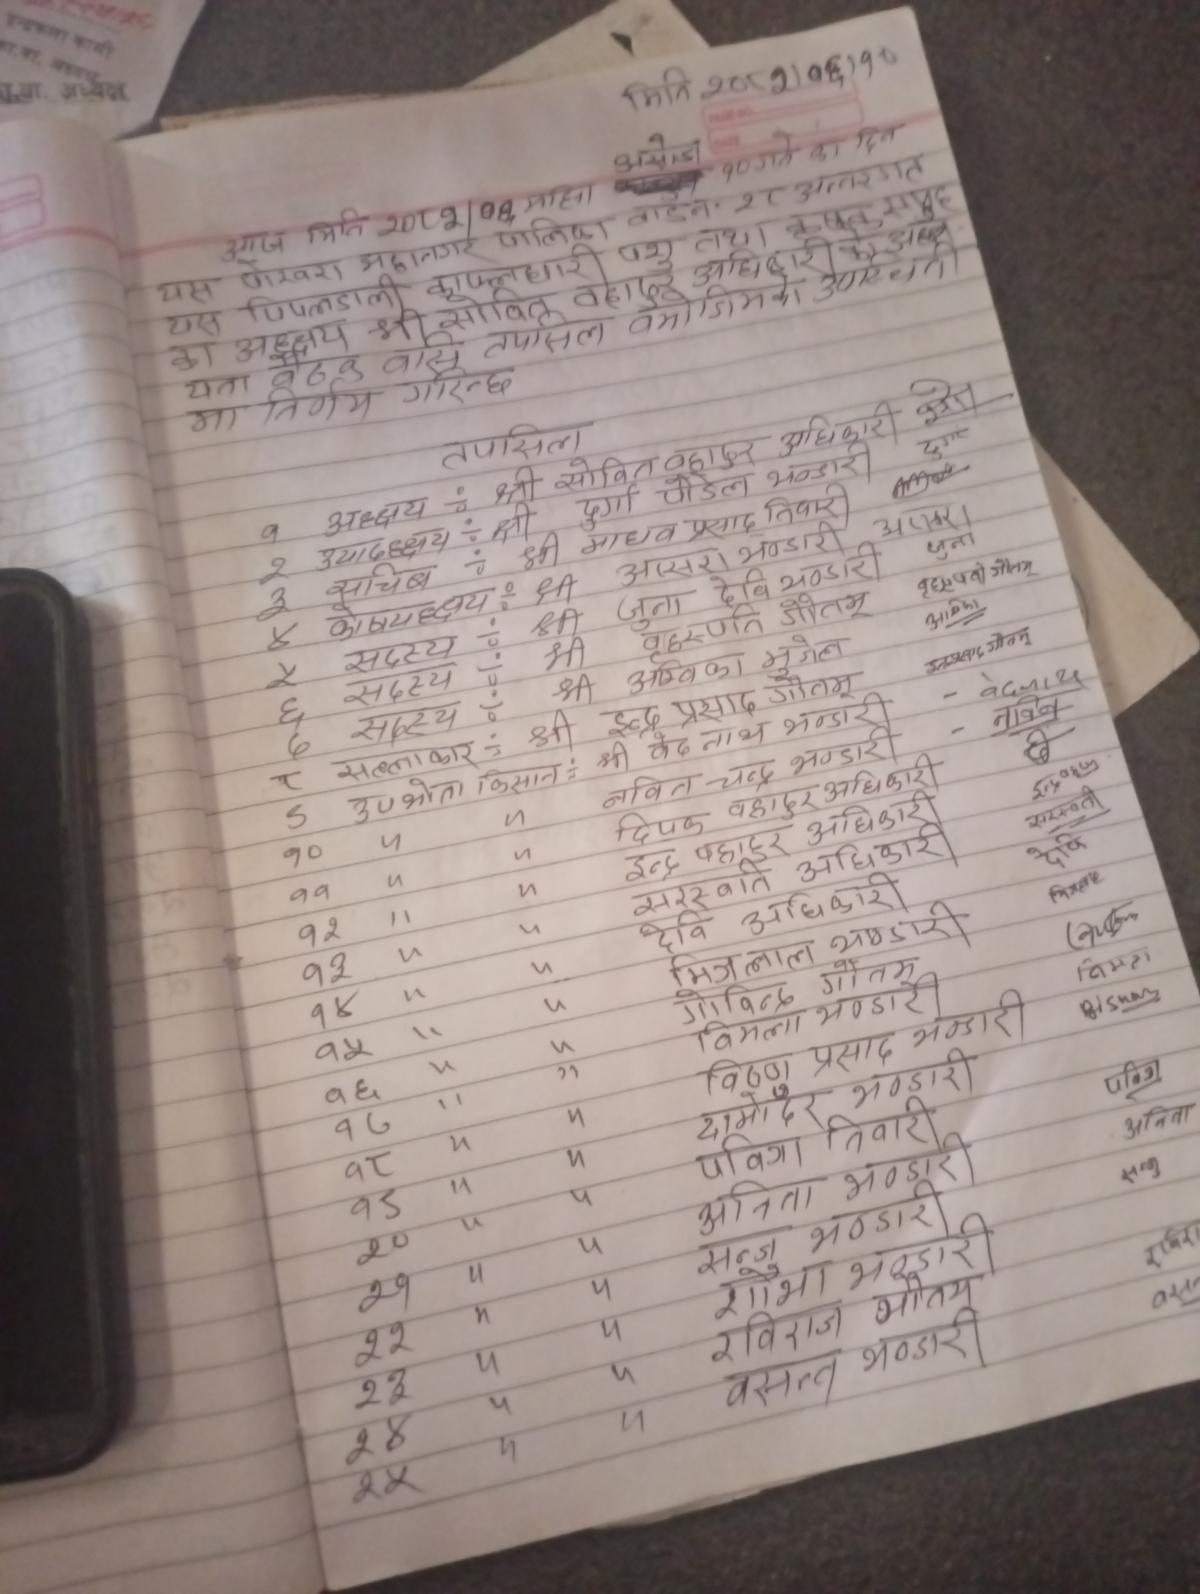 मिति २०८२।०६।१०
असोज
आज मिति २०८२/०६ मासा १० गते का दिन
यस पोखरा महानगर पालिका वाडनं. २८ अन्तरगत
यस पिपलडाली काफलघारी पशु तथा कृषक समुह
का अध्क्षय श्री सोवित वहादुर अधिकारी को अध्क्ष
यता वैठक वसि तपसिल वमोजिमको उपस्थिती
मा निर्णय गरिन्छ
तपसिल
१ अध्क्षय ÷ श्री सोवित वहादुर अधिकारी
२ उपाध्क्षय ÷ श्री दुर्गा पौडेल भण्डारी दुर्गा
३ सचिब ÷ श्री माधव प्रसाद तिवारी
४ कोषयध्क्षय ÷ श्री अप्सरा भण्डारी अप्सरा
५ सदस्य ÷ श्री जुना देवि भण्डारी जुना
६ सदस्य ÷ श्री वृहस्पति गौतम् वृहस्पती गौतम्
७ सदस्य ÷ श्री अम्विका भुजेल अम्बिका
८ सल्लाकार ÷ श्री इन्द्र प्रसाद गौतम् इन्द्रप्रसाद गौतम्
९ उपभोता किसान ÷ श्री वेद नाथ भण्डारी - वेदनाथ
१० " " नविन चन्द्र भण्डारी - नविन
११ " " दिपक वहादुर अधिकारी
१२ " " इन्द्र वहादुर अधिकारी
१३ " " सरस्वति अधिकारी सरस्वती
१४ " " देवि अधिकारी देवि
१५ " " मित्रलाल भण्डारी मित्रलाल
१६ " " गोविन्द गौतम्
१७ " " विमला भण्डारी विमला
१८ " " विष्णु प्रसाद भण्डारी
१९ " " दामोदर भण्डारी
२० " " पवित्रा तिवारी पवित्रा
२१ " " अनिता भण्डारी अनिता
२२ " " सन्जु भण्डारी सन्जु
२३ " " शोभा भण्डारी
२४ " " रविराज गौतम
२५ " " वसन्त भण्डारी